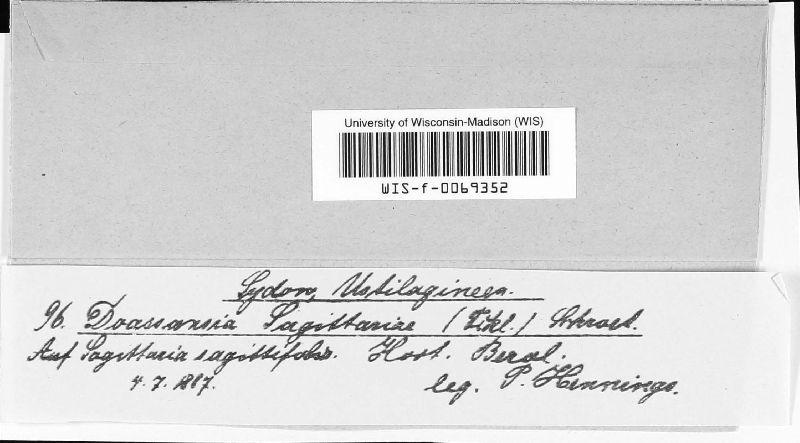 University of Wisconsin-Madison (WIS)
WIS-f-0069352
Sydow, Ustilagineen.
96. Doassansia Sagittariae (Fckl.) Schroet.
Auf Sagittaria sagittifolia. Hort. Berol.
4. 7. 1887. leg. P. Hennings.